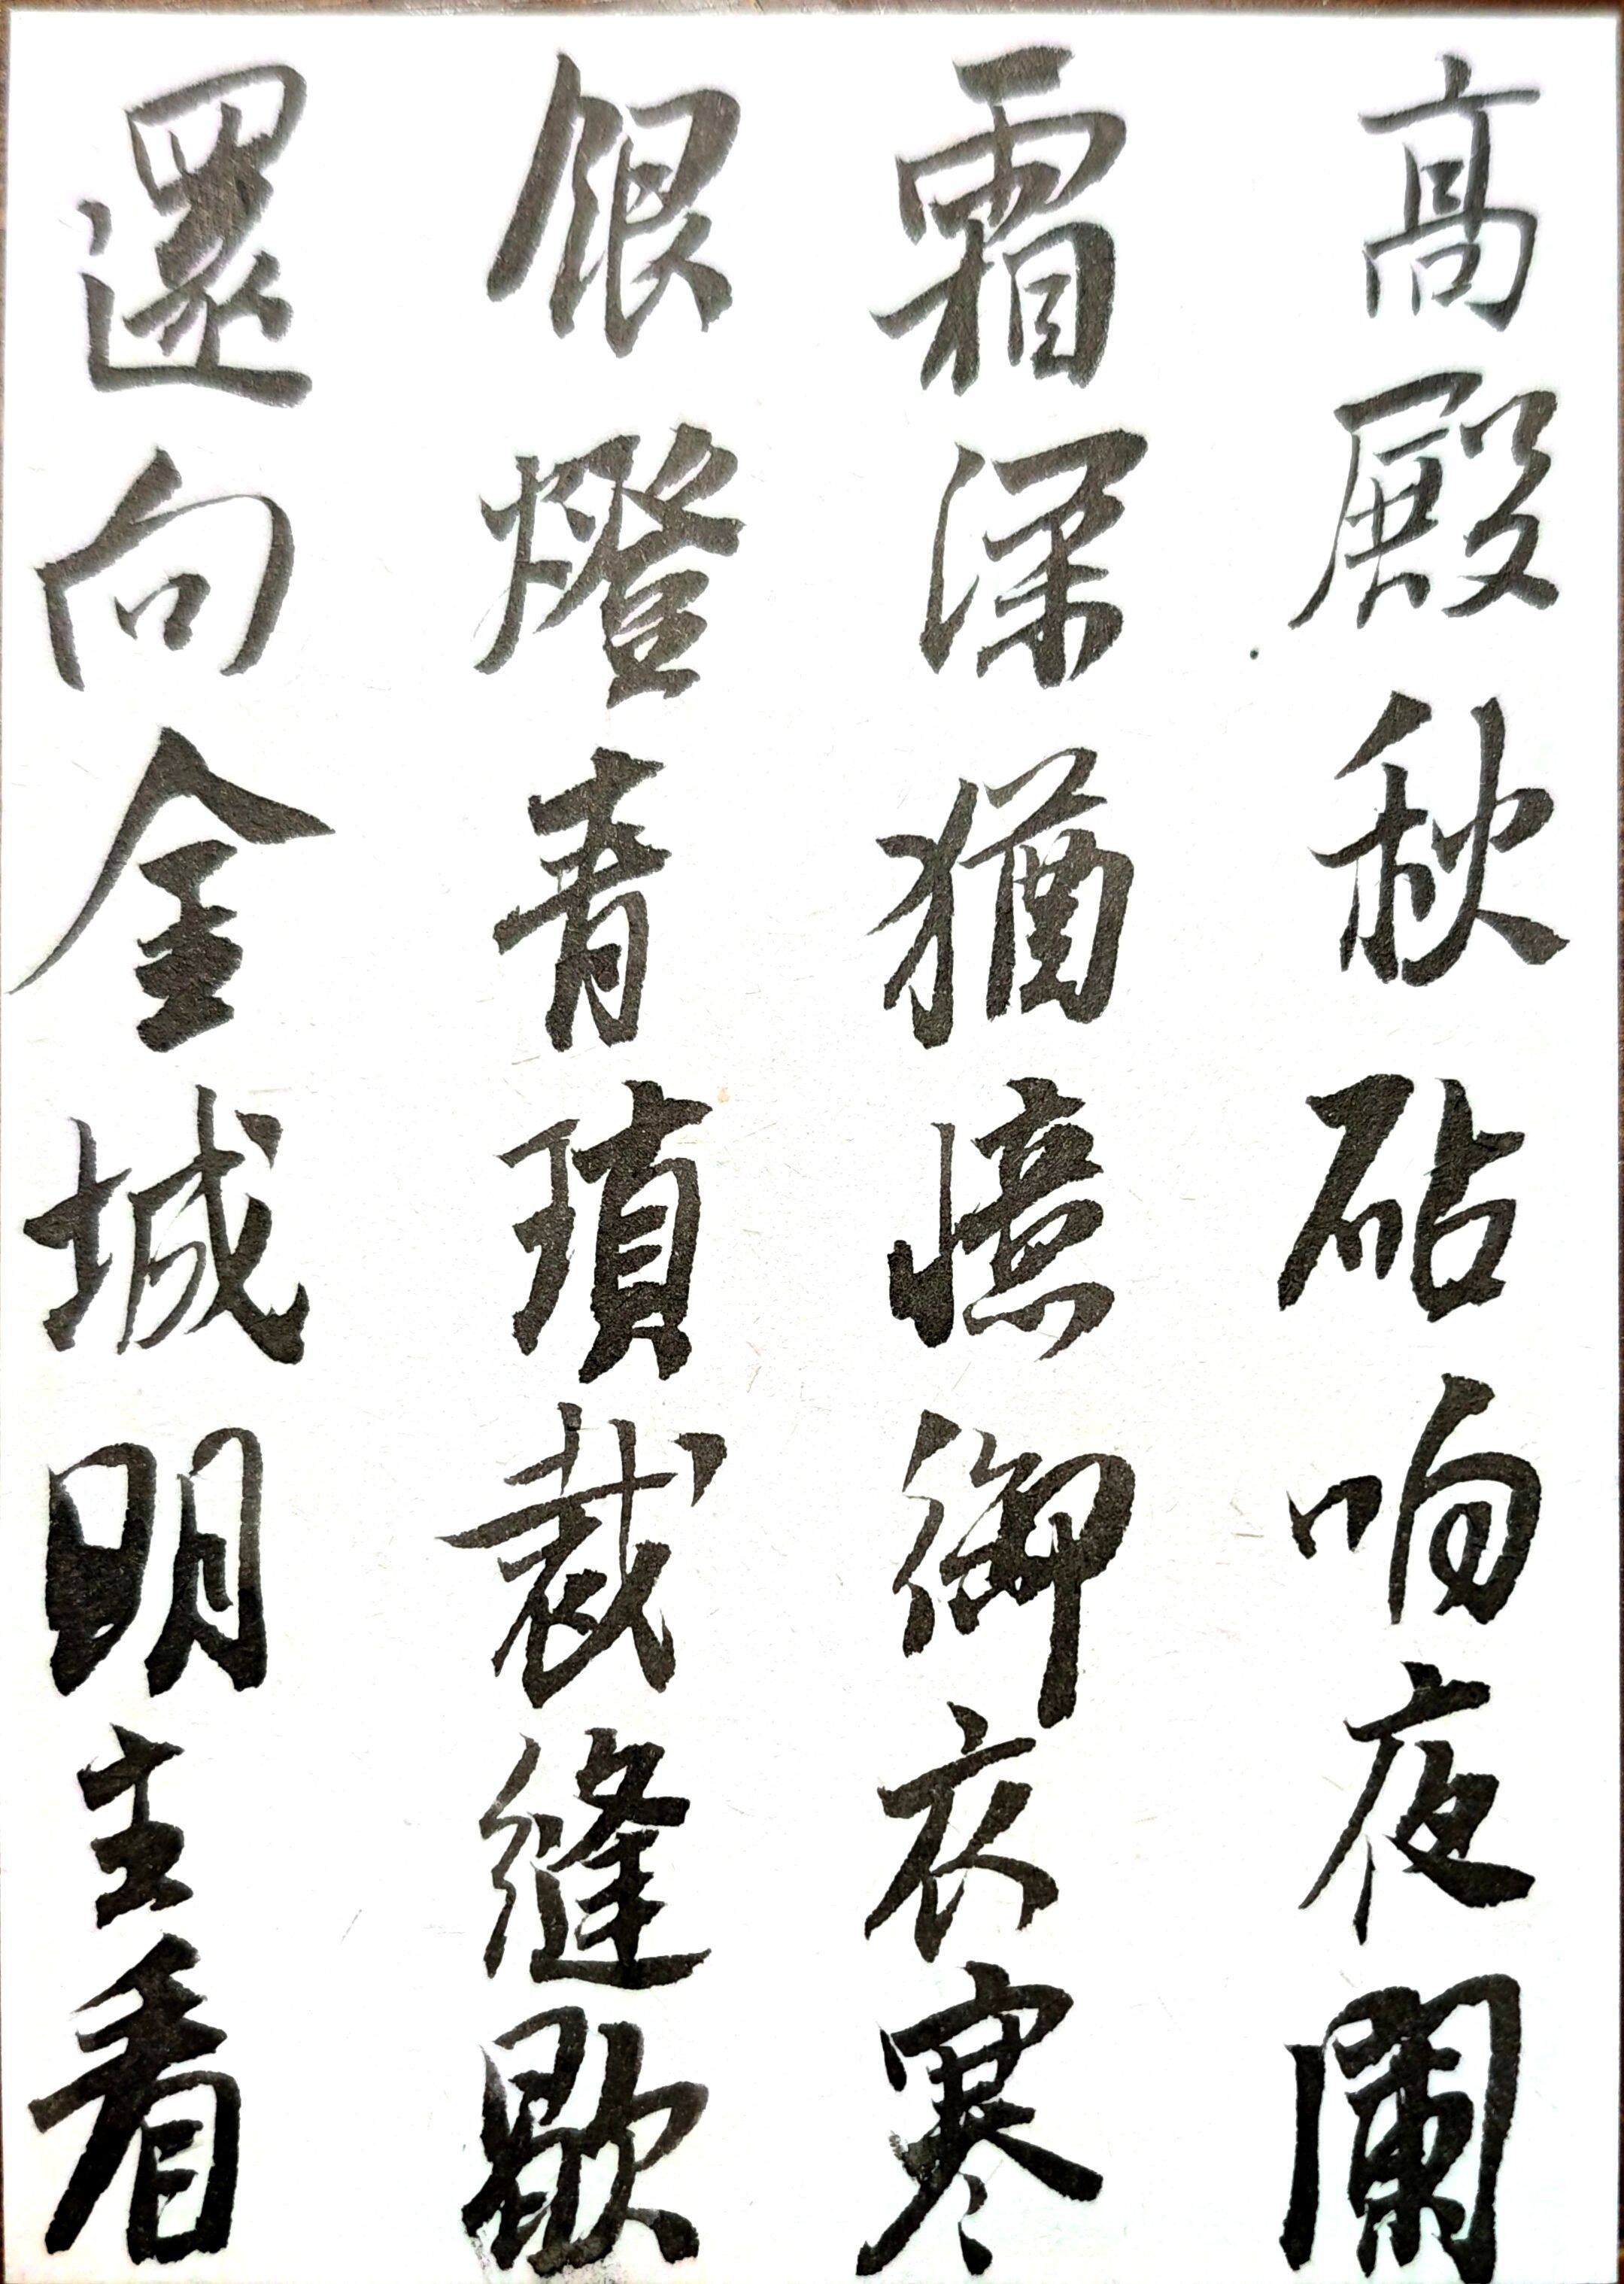 高殿秋砧响夜闌
霜深猶憶御衣寒
銀燈青瑣裁縫歇
還向金城明主看